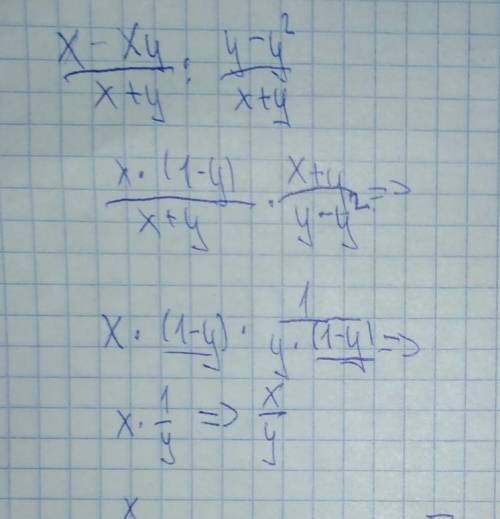 (x - xy)/(x + y) : (y - y²)/(x + y)
(x · (1-y))/(x + y) · (x + y)/(y - y²) =>
x · (1-y) · 1/(y · (1-y)) =>
x · 1/y => x/y
x